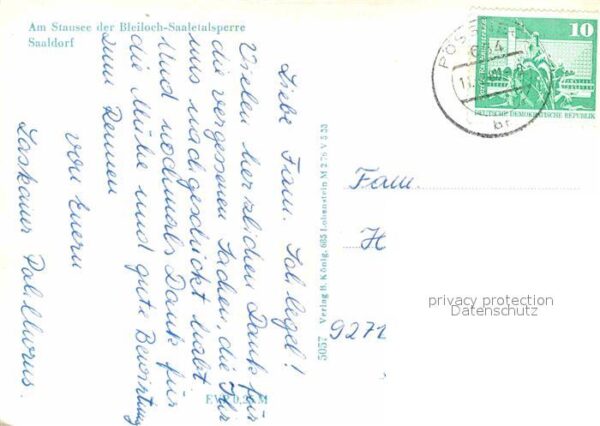 Am Stausee der Bleiloch-Saaletalsperre
Saaldorf
Liebe Fam.
Vielen herzlichen Dank für
die vergessenen Sachen, die Ihr
uns nachgeschickt habt.
Und nochmals Dank für
die Mühe und gute Bewirtung
zum Rennen
von Euern
EVP 0,20 M
5057 Verlag B. König, 685 Lobenstein M 276 V 5 33
10
DEUTSCHE DEMOKRATISCHE REPUBLIK
Fam.
H
9271
privacy protection
Datenschutz